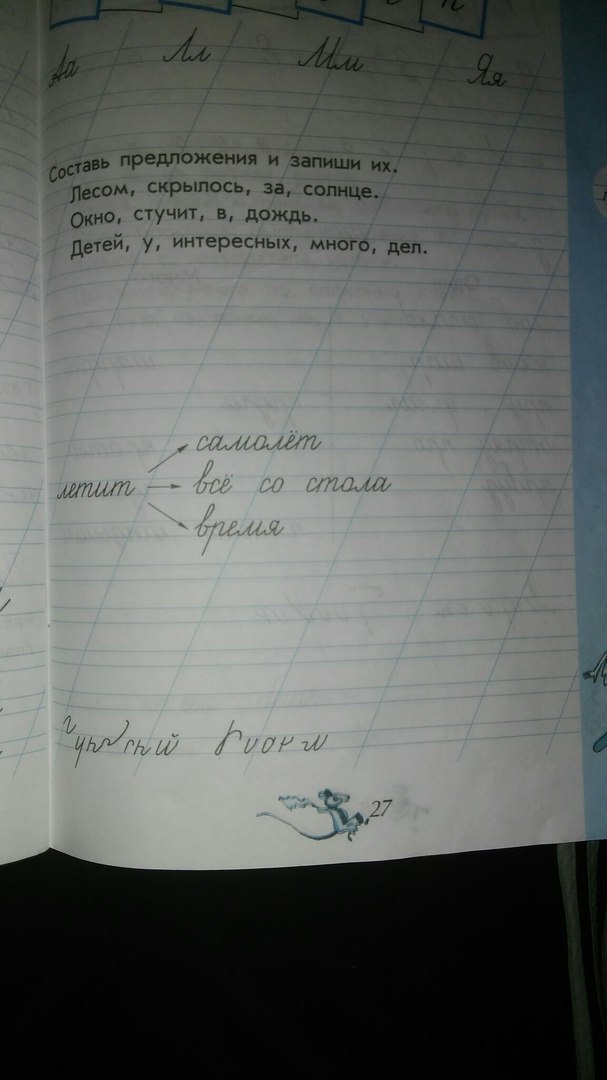 Аа Лл Мм Яя
Составь предложения и запиши их.
Лесом, скрылось, за, солнце.
Окно, стучит, в, дождь.
Детей, у, интересных, много, дел.
самолёт
летит всё со стола
время
27